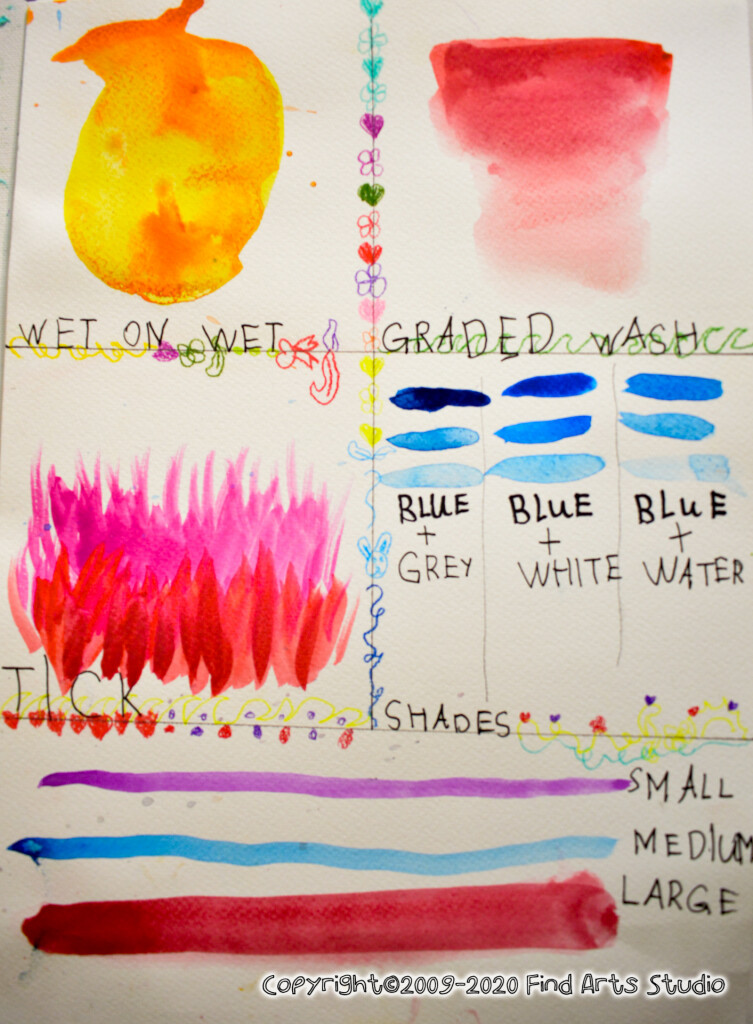 WET ON WET
GRADED WASH
BLUE
+
GREY
BLUE
+
WHITE
BLUE
+
WATER
TICK
SHADES
SMALL
MEDIUM
LARGE
Copyright©2009-2020 Find Arts Studio